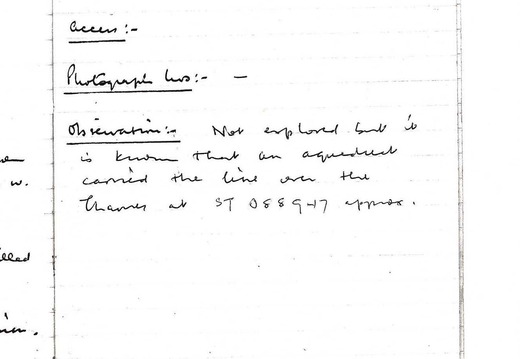 Access:-
Photograph Nos:- —
Observation:- Not explored but it
is known that an aqueduct
carried the line over the
at ST 0889 approx.
w.